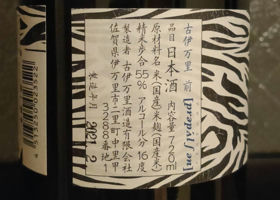 古伊万里 前
品目 日本酒 内容量 720ml
原材料名 米(国産)米麹(国産米)
精米歩合 55% アルコール分 16度
製造者 古伊万里酒造有限会社
佐賀県伊万里市二里町中里甲
3288番地1
製造年月 2021.2